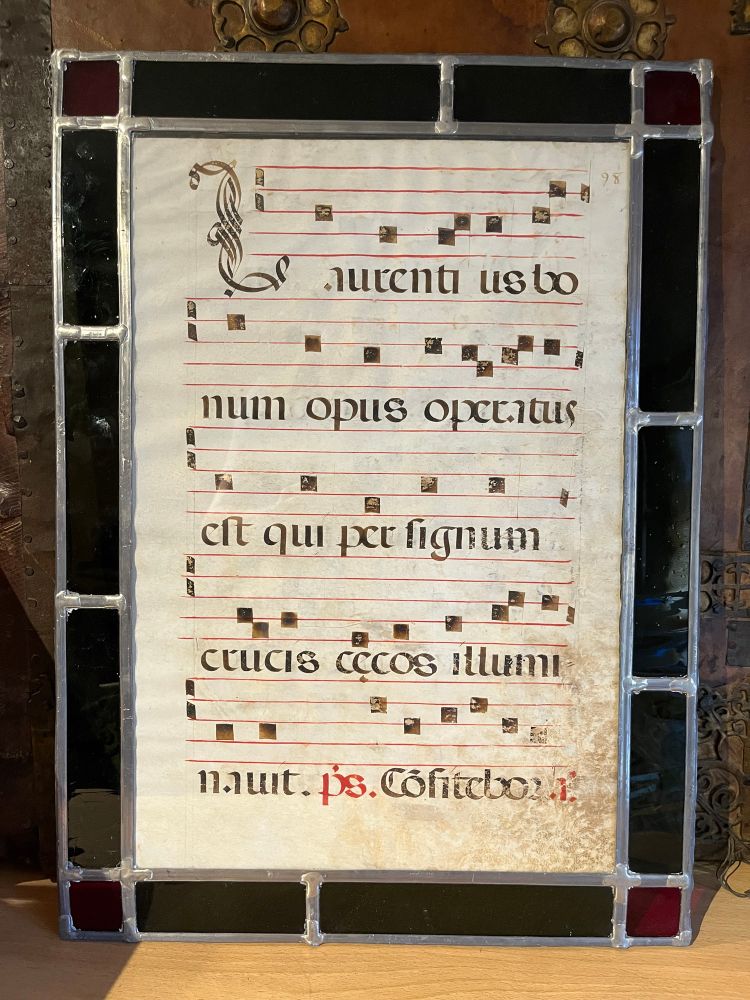 98
Laurenti us bo
num opus operatus
est qui per signum
crucis cęcos illumi
nauit. ps. Cōfitebor